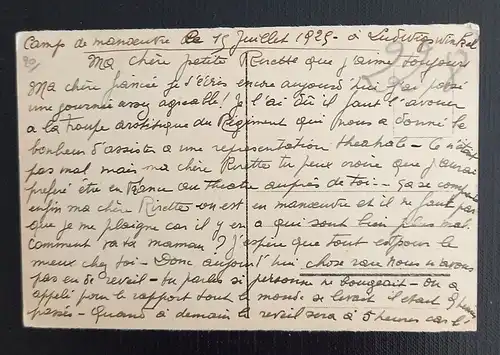 Camp de manœuvre le 15 Juillet 1929 - à Ludwigswinkel
Ma chère petite Risette que j'aime toujours
Ma chère fiancée je t'écris encore aujourd'hui j'ai passé
une journée assez agréable! Je l'ai dû il faut l'avouer
a la troupe artistique du Régiment qui nous a donné le
bonheur d'assister a une représentation théatrale - Ce n'était
pas mal mais ma chère Risette tu peux croire que j'aurais
préféré être en France au théatre auprès de toi - Ça se comprend
enfin ma chère Risette on est en manœuvre et il ne faut pas
que je me plaigne car il y en a qui sont bien plus mal.
Comment va ta maman? J'espère que tout est pour le
mieux chez toi - Donc aujourd'hui chose rare nous n'avons
pas eu de reveil - tu parles si personne ne bougeait - On a
appelé pour le rapport tout le monde se levait il était 9 heures
passés - Quand à demain le reveil sera à 5 heures car l'